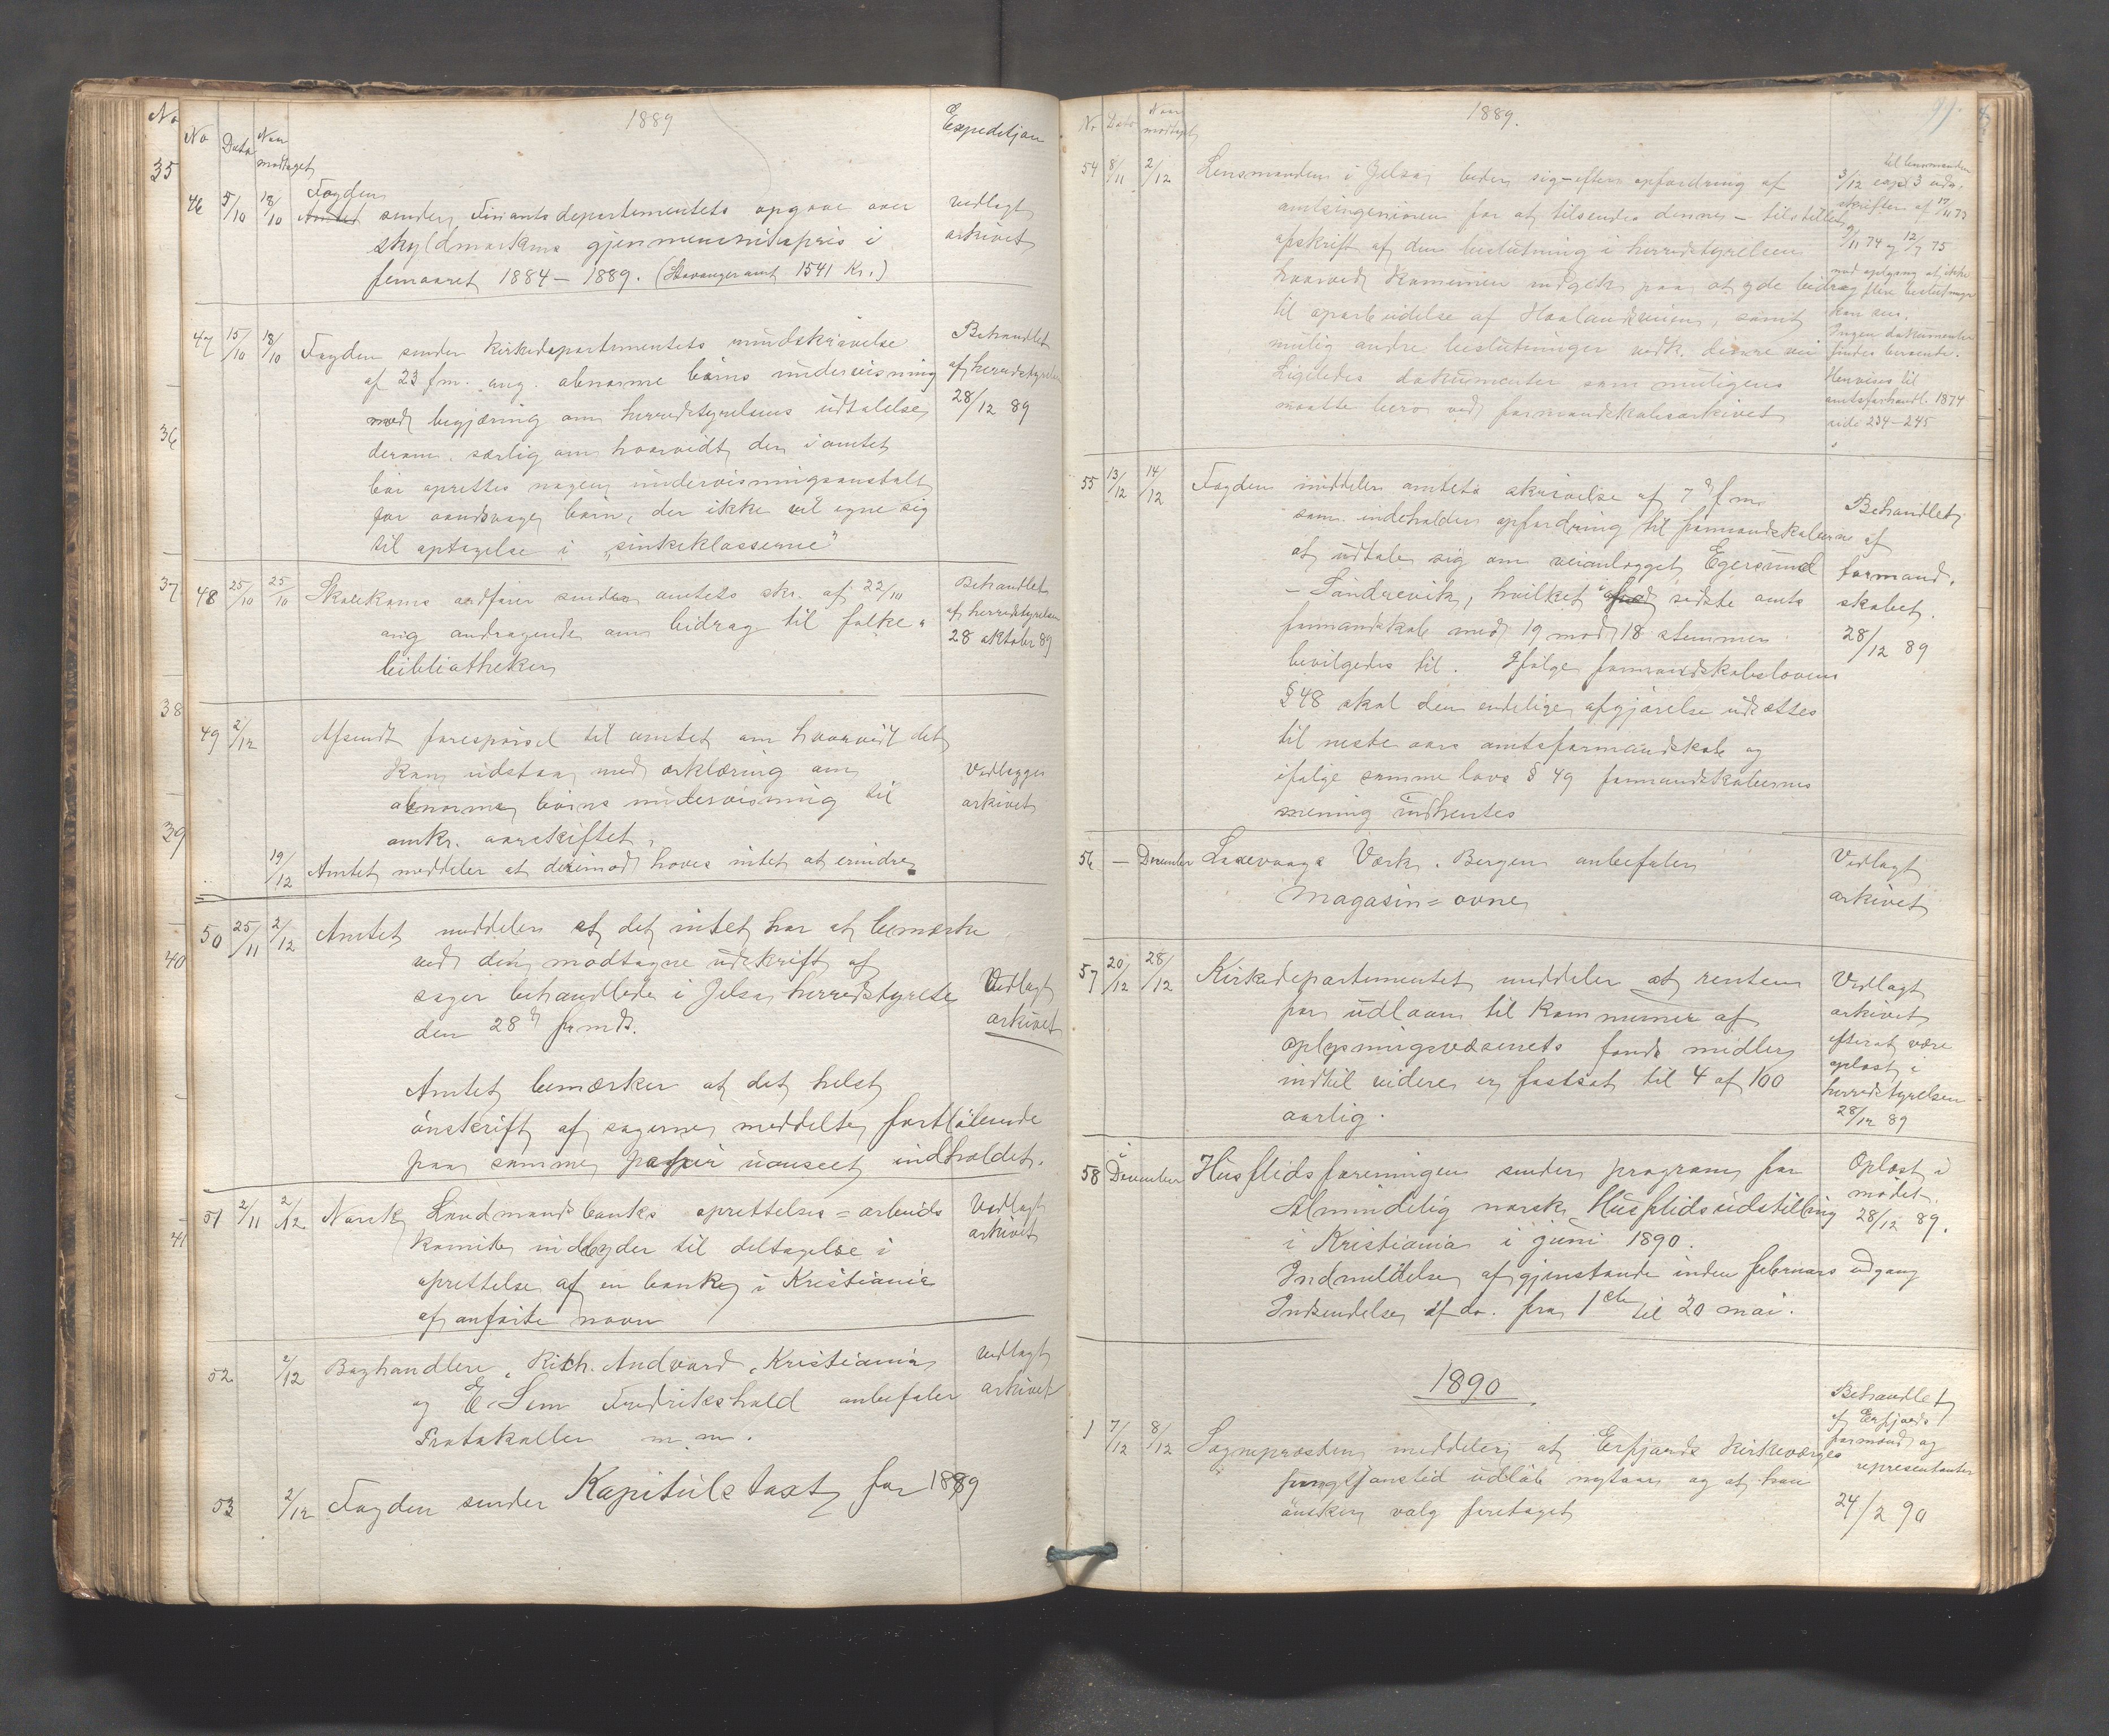 No
35
36
37
38
39
40
41
No Dato Naar modtaget 1889 Expeditjon
46 5/10 18/10 Fogden
Amtet sender Finantsdepartementets opgave over vedlagt
skyldmarkens gjennemsnitspris i arkivet
femaaret 1884 – 1889. (Stavanger amt 1541 Kr.)
47 15/10 18/10 Fogden sender Kirkedepartementets rundskrivelse Behandlet
af 23 f.m. ang. abnorme børns undervisning af herredstyrelsen
med begjæring om herredstyrelsens udtalelse 28/12 89
derom, særlig om hvorvidt der i amtet
bør oprettes nogen undervisningsanstalt
for aandsvage børn, der ikke vil egne sig
til optagelse i „sinkeklasserne"
48 25/10 25/10 Skolekoms ordfører sender amtets skr. af 22/10 Behandlet
ang andragende om bidrag til folke= af herredstyrelsen
bibliotheker 28 oktober 89
49 2/12 Afsendt forespørsel til amtet om hvorvidt det
kan udstaa med erklæring om Vedlægges
abnorme børns undervisning til arkivet
omkr. aarsskiftet.
19/12 Amtet meddeler at derimod haves intet at erindre.
50 25/11 2/12 Amtet meddeler at det intet har at bemærke
ved den modtagne udskrift af
sager behandlede i Jelsa herredstyrelse Vedlagt
den 28d f.m. arkivet
Amtet bemærker at det helst
ønsker af sagerne meddelte fortløbende
paa samme papir uanseet indholdet.
51 2/11 2/12 Norsk Landmandsbanks oprettelses=arbeids Vedlagt
komite indbyder til deltagelse i arkivet
oprettelse af en bank i Kristiania
af anførte navn
52 2/12 Boghandlere Rich. Andvord, Kristiania vedlagt
og E Sem Fredrikshald anbefaler arkivet
Protokoller m.m.
53 2/12 Fogden sender Kapitelstaxt for 1889
No Dato Naar modtaget 1889.
54 8/11 2/12 Lensmanden i Jelsa beder sig – efter opfordring af
amtsingeniøren for at tilsendes denne – tilstillet
afskrift af den beslutning i herredstyrelsen
hvorved Kommunen indgik paa at yde bidrag
til oparbeidelse af Haalandsveien, samt
mulig andre beslutninger vedk. denne vei
Ligeledes dokumenter som muligens
maatte bero ved formandskabsarkivet
til lensmanden
3/12 exp. 3 ud-
skrifter af
9/11 74 og 12/7 75
med oplysning at ikke
flere beslutninger
kan sees.
Ingen dokumenter
findes beroende.
Henvises til
amtsforhandl. 1874
side 234–245
55 13/12 14/12 Fogden meddeler amtets skrivelse af 7d f.m.
som indeholder opfordring til formandskaberne Behandlet af
at udtale sig om veianlægget Egersund formand-
– Søndrevik, hvilket i sidste amts skabet.
formandskab med 19 mod 18 stemmer 28/12 89
bevilgedes til. Ifølge formandskabslovens
§ 48 skal den endelige afgjørelse udsættes
til neste aars amtsformandskab og
ifølge samme lovs § 49 formandskabernes
mening indhentes
56 – December Laxevaags Værk, Bergen anbefaler Vedlagt
Magasin=ovne arkivet
57 20/12 28/12 Kirkedepartementet meddeler at renten Vedlagt
for udlaan til kommuner af arkivet
oplysningsvæsenets fonds midler efterat være
indtil videre er fastsat til 4 af 100 oplæst i
aarlig. herredstyrelsen
28/12 89
58 i December Husflidsforeningen sender program for Oplæst i
Almindelig norsk Husflidsudstilling mødet
i Kristiania i juni 1890. 28/12 89.
Indmeldelse af gjenstande inden februars udgang
Indsendelse af do. fra 1ste til 20 mai.
1890
1 7/12 8/12 Sognepresten meddeler at Erfjords Kirkeværges
funktjonstid udløb nytaar og at han
ønsker valg foretaget
Behandlet
af Erfjords
formænd og
representanter
24/2 90